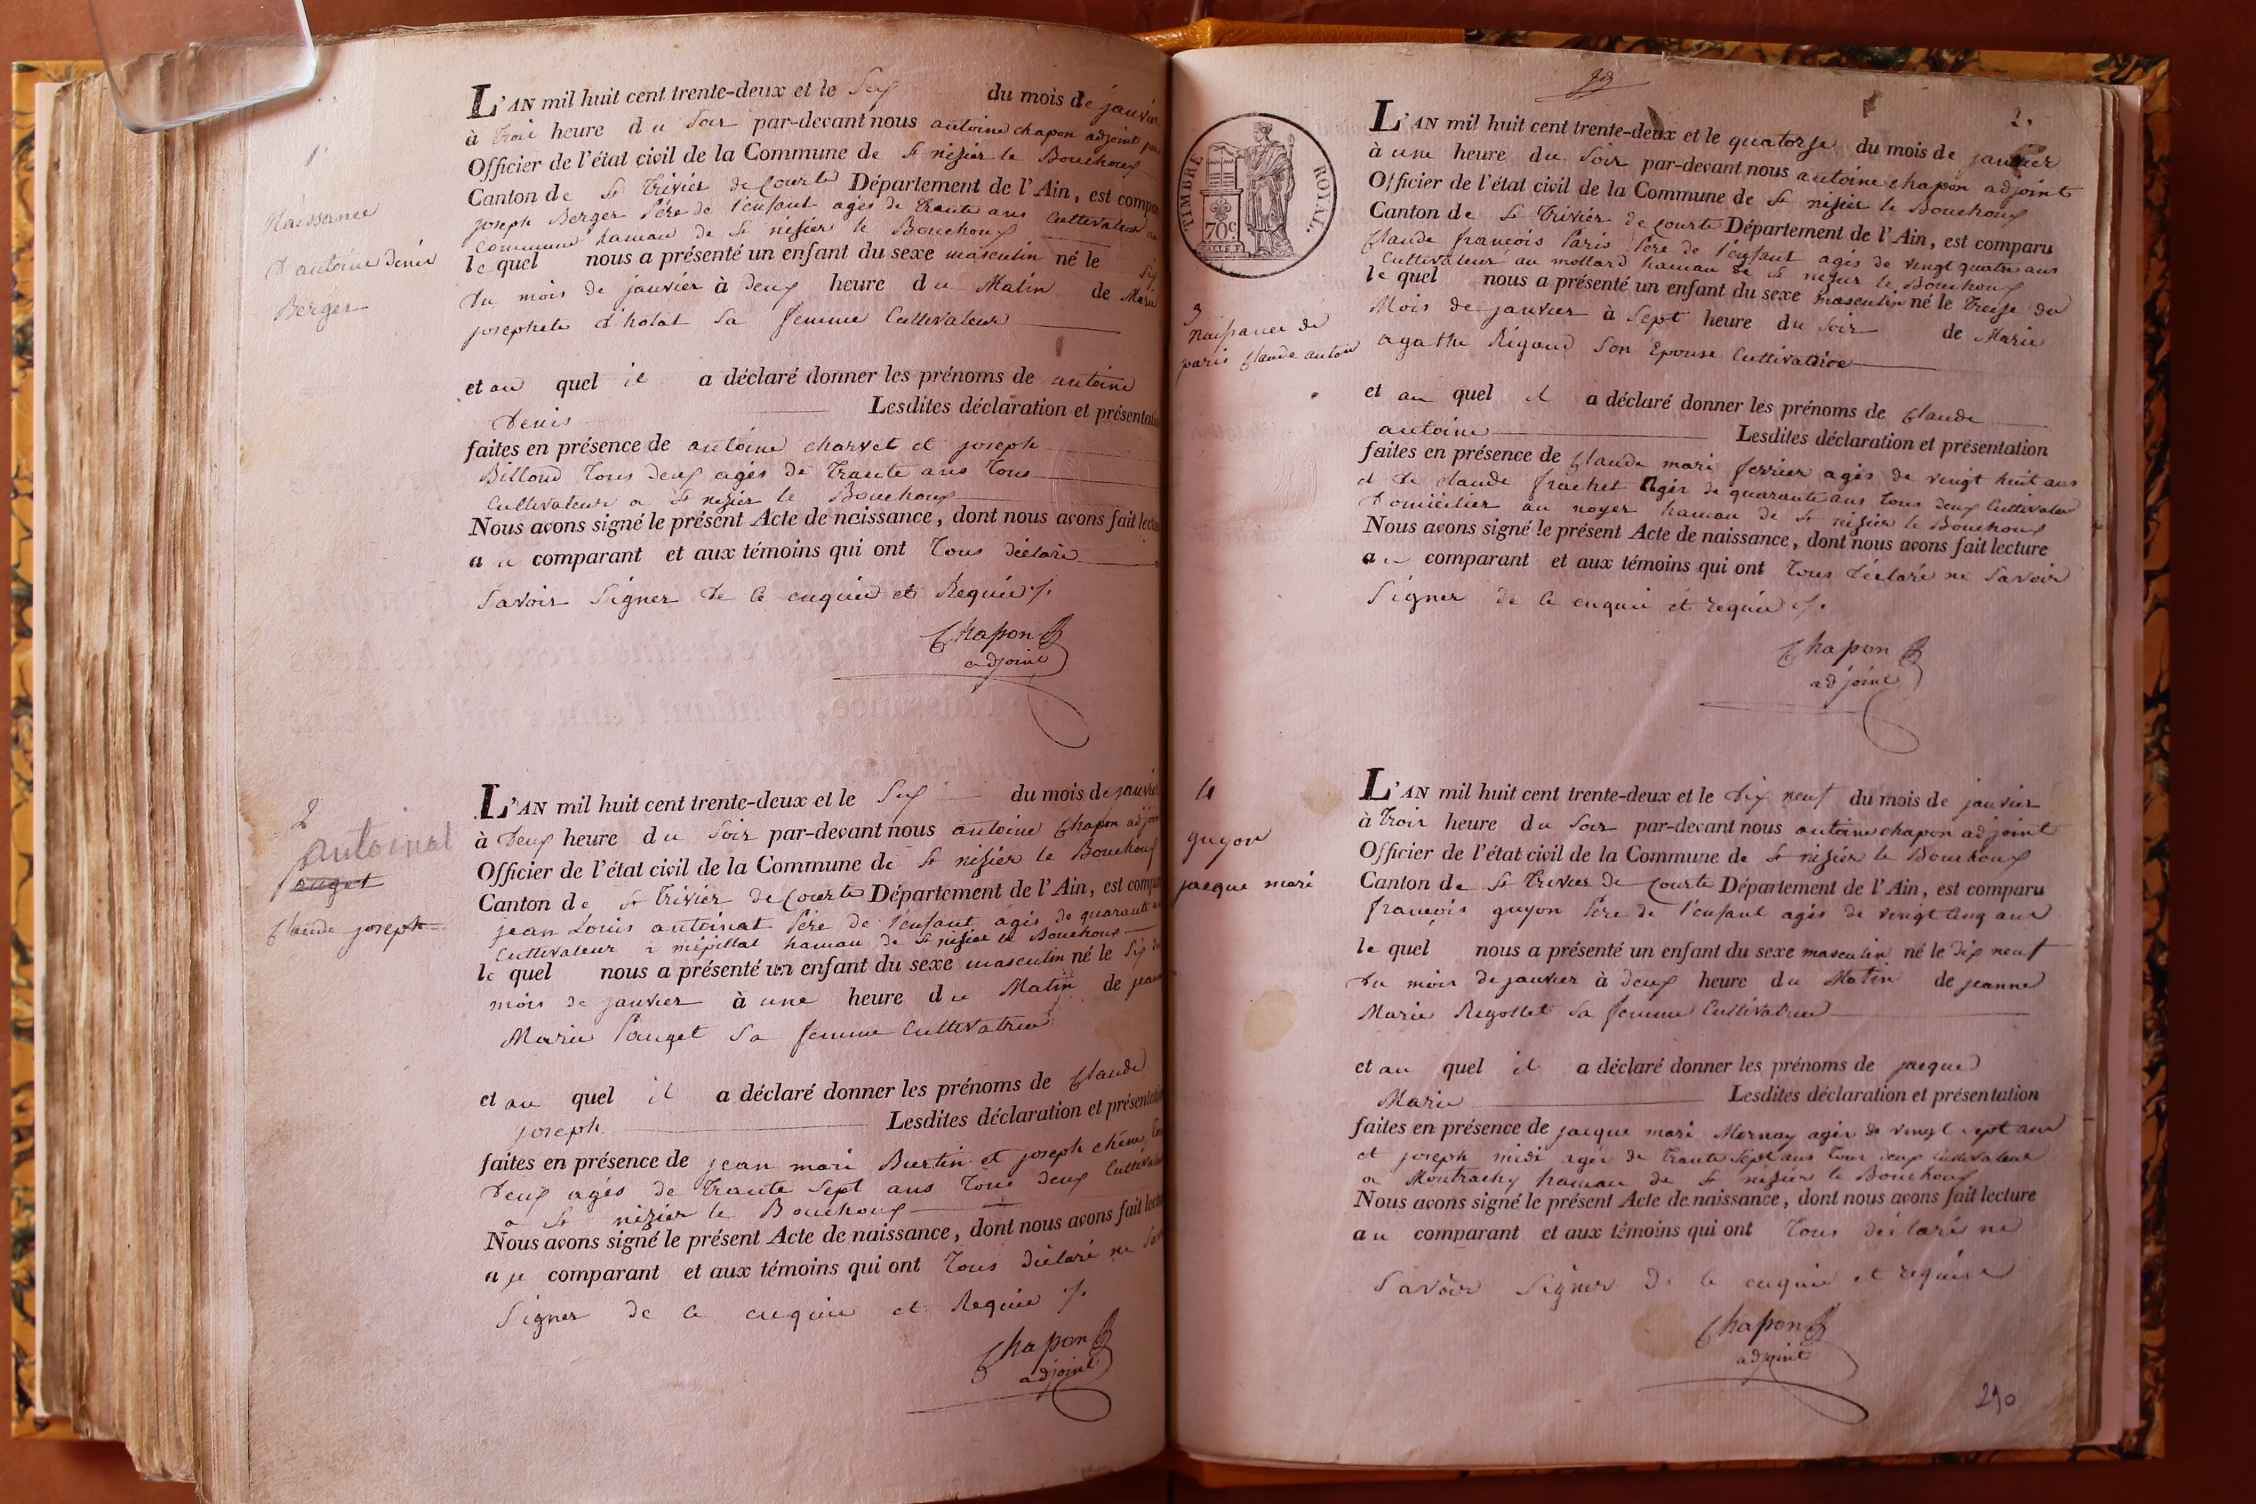 1.
Naissance
D'antoine denis
Berger
L'AN mil huit cent trente-deux et le Six du mois de janvier
à trois heure du Soir par-devant nous antoine chapon adjoint
Officier de l'état civil de la Commune de St nizier le Bouchoux
Canton de St Trivier de Courte Département de l'Ain, est
joseph Berger Père de l'enfant agés de trante ans Cultivateur
Commune hamau de St nizier le Bouchoux
le quel nous a présenté un enfant du sexe masculin né le six
du mois de janvier à deux heure du Matin de Marie
josephete d'holat Sa femme Cultivateur
et au quel il a déclaré donner les prénoms de antoine
Denis Lesdites déclaration et
faites en présence de antoine charvet et joseph
Billoud tous deux agés de trante ans tous
Cultivateur a St nizier le Bouchoux
Nous avons signé le présent Acte de naissance, dont nous avons fait
au comparant et aux témoins qui ont tous déclaré
Savoir Signer de ce enquis et Requis ./.
Chapon
adjoint
2
antoinat
pouget
Claude joseph
L'AN mil huit cent trente-deux et le Six du mois de janvier
à Deux heure du Soir par-devant nous antoine Chapon
Officier de l'état civil de la Commune de St nizier le Bouchoux
Canton de St Trivier de Courte Département de l'Ain, est
jean Louis antoinat Père de l'enfant agés de quarante
Cultivateur a mépillat hamau de St nizier le Bouchoux
le quel nous a présenté un enfant du sexe masculin né le Six
mois de janvier à une heure du Matin de
Marie Pouget Sa femme Cultivatrice
et au quel il a déclaré donner les prénoms de Claude
joseph Lesdites déclaration et
faites en présence de jean mari Burtin et joseph chêne
Deux agés de trante Sept ans tous deux
a St nizier le Bouchoux
Nous avons signé le présent Acte de naissance, dont nous avons fait
au comparant et aux témoins qui ont tous déclaré ne
Signer de ce enquis et Requis ./.
Chapon
adjoint
2.
TIMBRE ROYAL.
70c
3
naissance de
paris Claude antoine
L'AN mil huit cent trente-deux et le quatorze du mois de janvier
à une heure du Soir par-devant nous antoine chapon adjoint
Officier de l'état civil de la Commune de St nizier le Bouchoux
Canton de St Trivier de Courte Département de l'Ain, est comparu
Claude françois Paris Père de l'enfant agés de vingt quatre ans
Cultivateur au mollard hamau de St nizier le Bouchoux
le quel nous a présenté un enfant du sexe masculin né le treize du
Mois de janvier à Sept heure du Soir de Marie
agathe Rigaud Son Epouse Cultivatrice
et au quel il a déclaré donner les prénoms de Claude
antoine Lesdites déclaration et présentation
faites en présence de Claude mari ferrier agés de vingt huit ans
et de claude frachet Agés de quarante ans tous deux Cultivateur
Domicilier au noyer hamau de St nizier le Bouchoux
Nous avons signé le présent Acte de naissance, dont nous avons fait lecture
au comparant et aux témoins qui ont tous déclaré ne Savoir
Signer de ce enquis et requis ./.
Chapon
adjoint
4
guyon
jacque mari
L'AN mil huit cent trente-deux et le dix neuf du mois de janvier
à trois heure du Soir par-devant nous antoine chapon adjoint
Officier de l'état civil de la Commune de St nizier le Bouchoux
Canton de St Trivier de Courte Département de l'Ain, est comparu
françois guyon Père de l'enfant agés de vingt cinq ans
le quel nous a présenté un enfant du sexe masculin né le dix neuf
du mois de janvier à deux heure du Matin de jeanne
Marie Rigollet Sa femme Cultivatrice
et au quel il a déclaré donner les prénoms de jacque
Marie Lesdites déclaration et présentation
faites en présence de jacque mari Mornay agés de vingt sept ans
et joseph midi agés de trante Sept ans tous deux Cultivateur
a Montrachy hamau de St nizier le Bouchoux
Nous avons signé le présent Acte de naissance, dont nous avons fait lecture
au comparant et aux témoins qui ont tous déclaré ne
Savoir Signer de ce enquis et requise
Chapon
adjoint
290